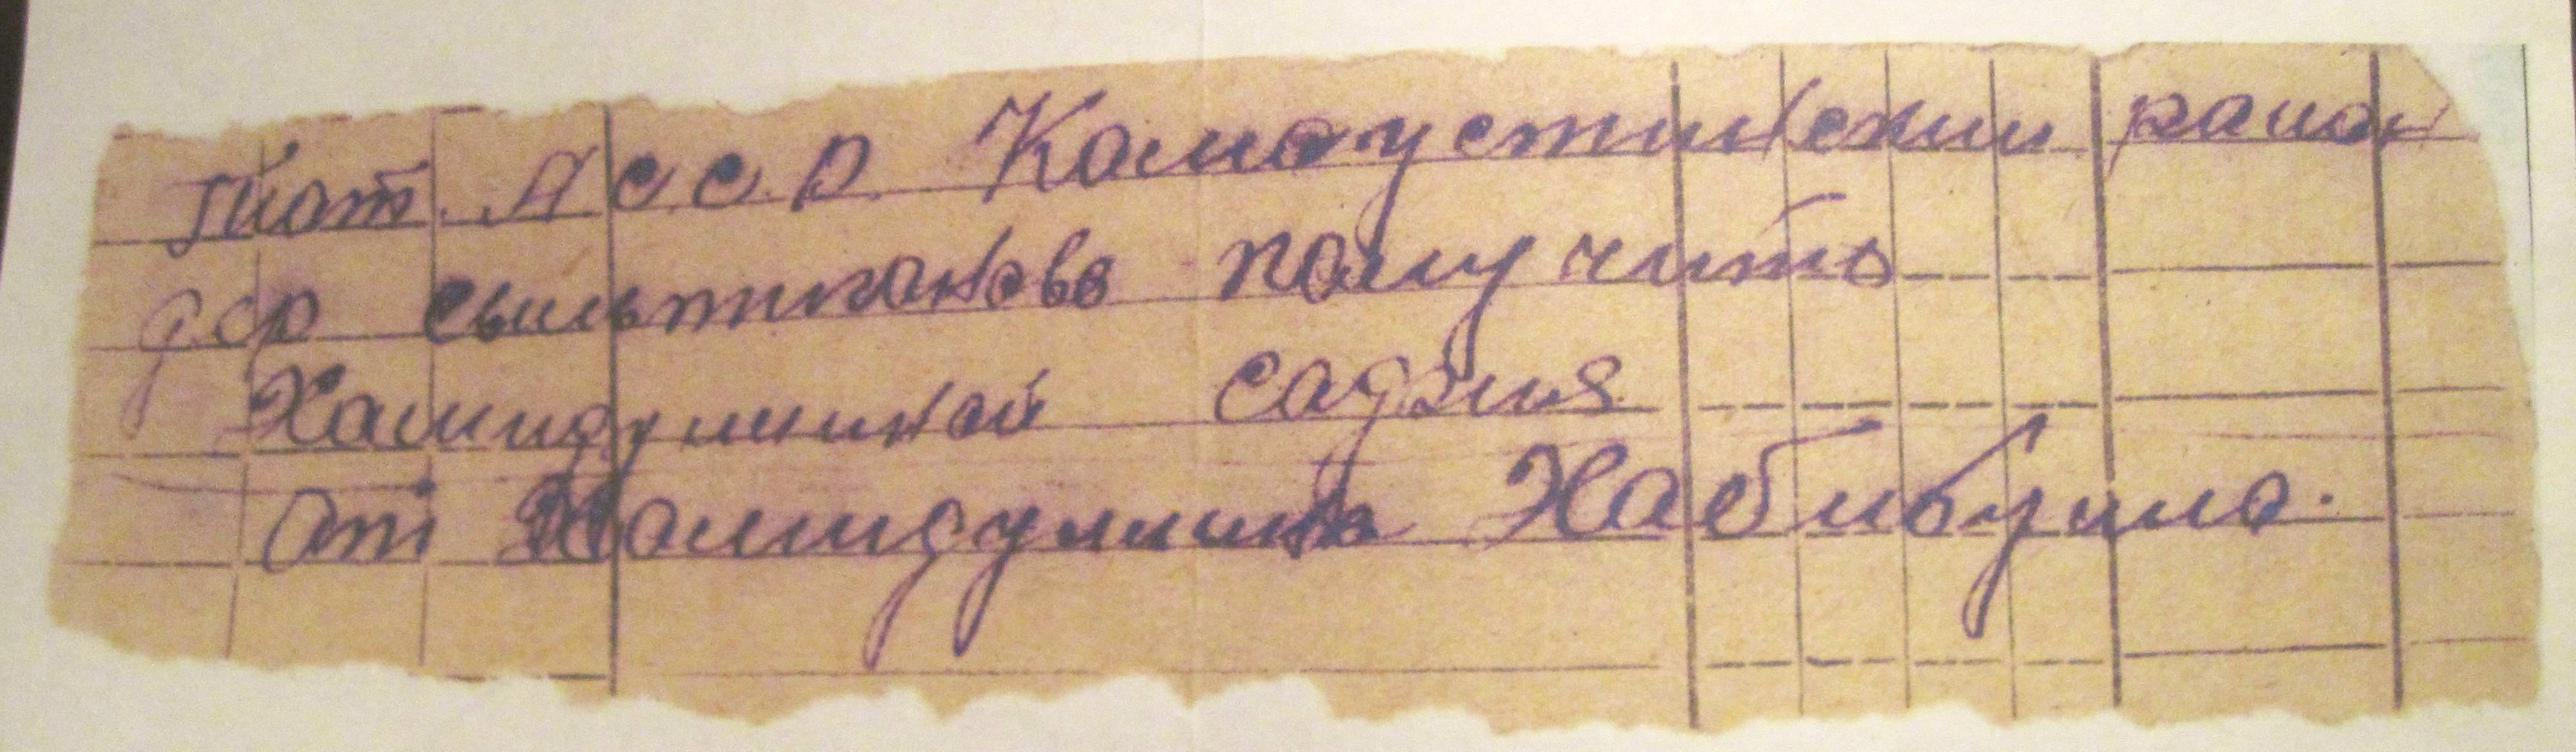 Тат. АССР Камаустинский раион
дер сыльтиганово получить
Хамидулиной сафия
от Хамидуллина Хабибулла.